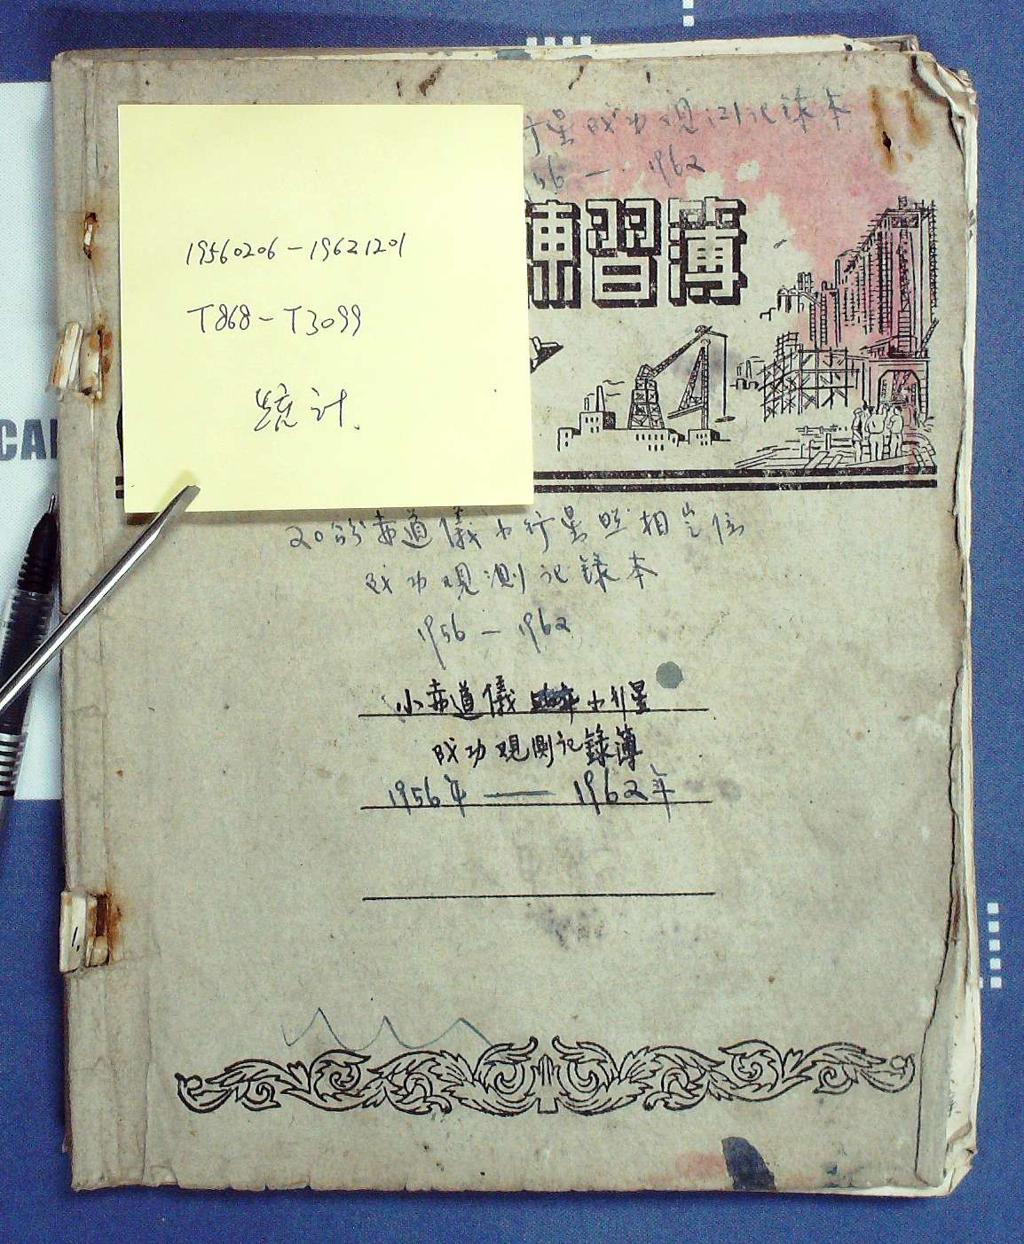 行星成功观测记錄本
56 — 1962
練習簿
19560206-19621201
T868-T3099
统计.
CA
20公分赤道儀小行星照相定位
成功观测记錄本
1956 — 1962
小赤道儀 小行星
成功观测记錄簿
1956年 —— 1962年
1.